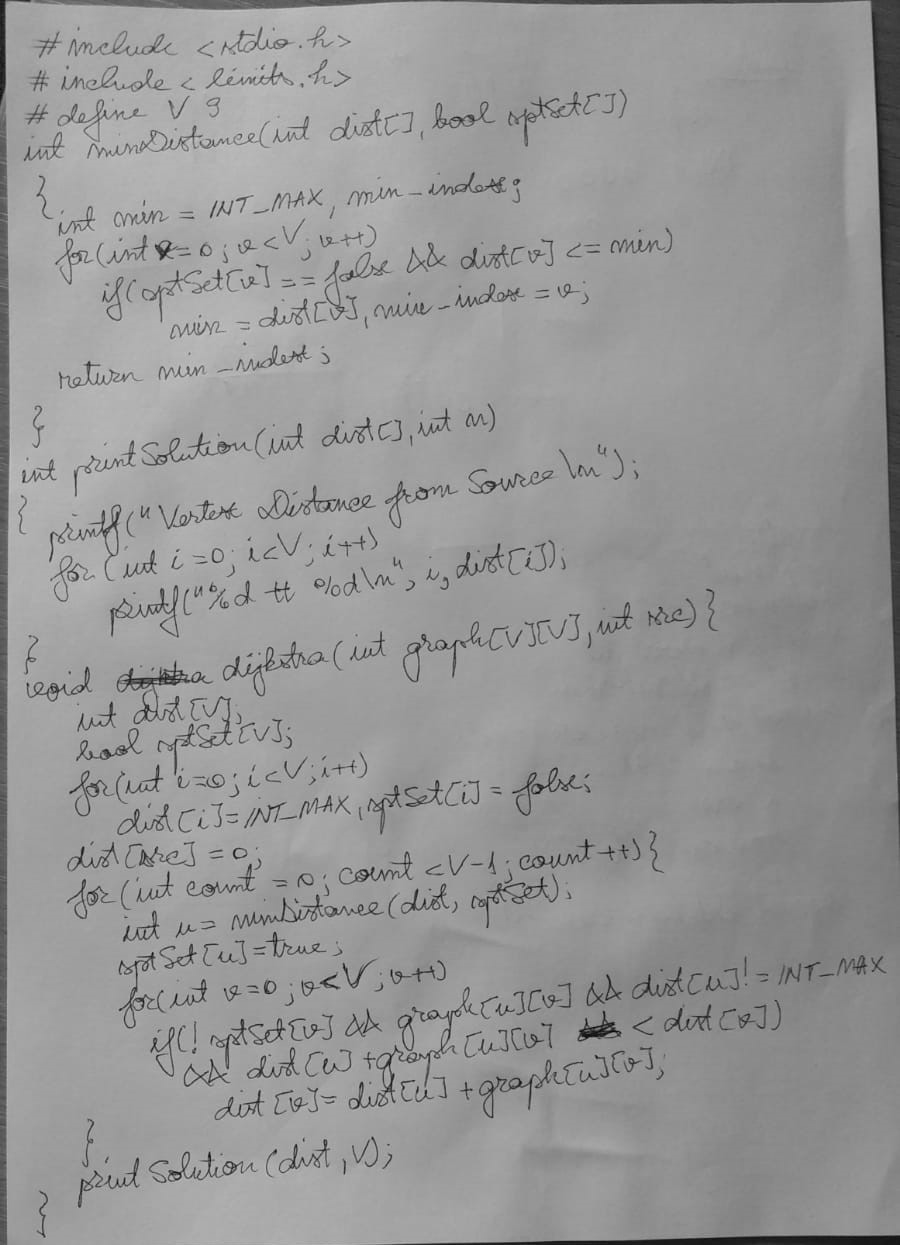 #include <stdio.h>
#include <limits.h>
#define V 9
int minDistance(int dist[], bool sptSet[])
{
int min = INT_MAX, min_index;
for(int v=0; v<V; v++)
if(sptSet[v] == false && dist[v] <= min)
min = dist[v], min_index = v;
return min_index;
}
int printSolution(int dist[], int n)
{
printf("Vertex Distance from Source\n");
for(int i=0; i<V; i++)
printf("%d tt %d\n", i, dist[i]);
}
void dijkstra(int graph[V][V], int src){
int dist[V];
bool sptSet[V];
for(int i=0; i<V; i++)
dist[i]=INT_MAX, sptSet[i] = false;
dist[src] = 0;
for(int count = 0; count <V-1; count++){
int u= minDistance(dist, sptSet);
sptSet[u]=true;
for(int v=0; v<V; v++)
if(! sptSet[v] && graph[u][v] && dist[u]!= INT_MAX
&& dist[u]+graph[u][v] < dist[v])
dist[v]= dist[u]+graph[u][v];
}
printSolution(dist, V);
}